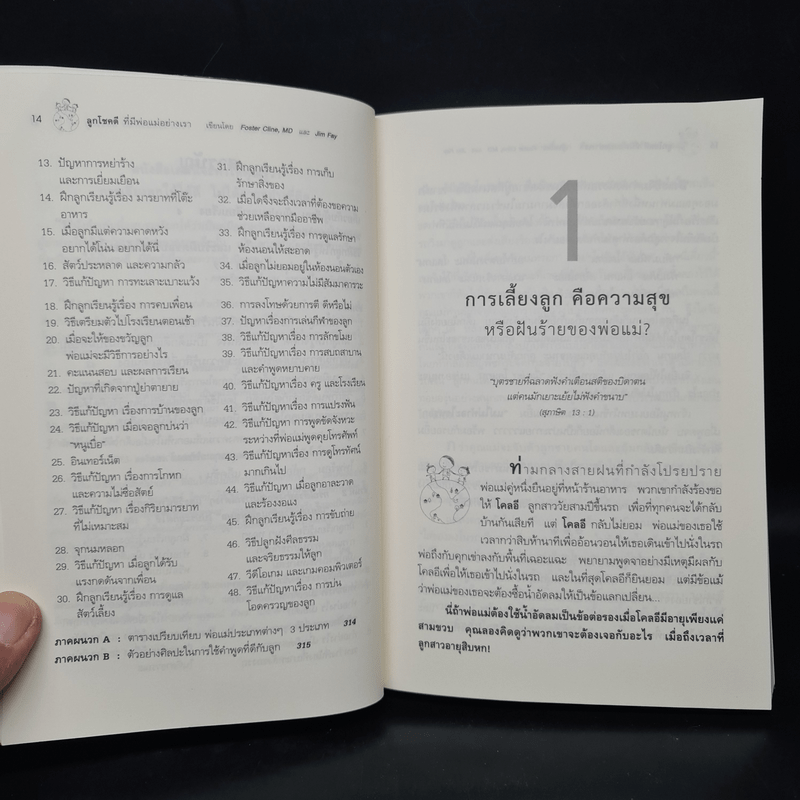 14 ลูกโชคดี ที่มีพ่อแม่อย่างเรา เขียนโดย Foster Cline, MD และ Jim Fay
13. ปัญหาการหย่าร้าง
และการเยี่ยมเยือน
14. ฝึกลูกเรียนรู้เรื่อง มารยาทที่โต๊ะ
อาหาร
15. เมื่อลูกมีแต่ความคาดหวัง
อยากได้โน่น อยากได้นี่
16. สัตว์ประหลาด และความกลัว
17. วิธีแก้ปัญหา การทะเลาะเบาะแว้ง
18. ฝึกลูกเรียนรู้เรื่อง การคบเพื่อน
19. วิธีเตรียมตัวไปโรงเรียนตอนเช้า
20. เมื่อจะให้ของขวัญลูก
พ่อแม่จะมีวิธีการอย่างไร
21. คะแนนสอบ และผลการเรียน
22. ปัญหาที่เกิดจากปู่ย่าตายาย
23. วิธีแก้ปัญหา เรื่องการบ้านของลูก
24. วิธีแก้ปัญหา เมื่อเจอลูกบ่นว่า
"หนูเบื่อ"
25. อินเทอร์เน็ต
26. วิธีแก้ปัญหา เรื่องการโกหก
และความไม่ซื่อสัตย์
27. วิธีแก้ปัญหา เรื่องกิริยามารยาท
ที่ไม่เหมาะสม
28. จุกนมหลอก
29. วิธีแก้ปัญหา เมื่อลูกได้รับ
แรงกดดันจากเพื่อน
30. ฝึกลูกเรียนรู้เรื่อง การดูแล
สัตว์เลี้ยง
31. ฝึกลูกเรียนรู้เรื่อง การเก็บ
รักษาสิ่งของ
32. เมื่อใดจึงจะถึงเวลาที่ต้องขอความ
ช่วยเหลือจากมืออาชีพ
33. ฝึกลูกเรียนรู้เรื่อง การดูแลรักษา
ห้องนอนให้สะอาด
34. เมื่อลูกไม่ยอมอยู่ในห้องนอนตัวเอง
35. วิธีแก้ปัญหาความไม่มีสัมมาคารวะ
36. การลงโทษด้วยการตี ดีหรือไม่
37. ปัญหาเรื่องการเล่นกีฬาของลูก
38. วิธีแก้ปัญหาเรื่อง การลักขโมย
39. วิธีแก้ปัญหาเรื่อง การสบถสาบาน
และคำพูดหยาบคาย
40. วิธีแก้ปัญหาเรื่อง ครู และโรงเรียน
41. วิธีแก้ปัญหาเรื่อง การแปรงฟัน
42. วิธีแก้ปัญหา การพูดขัดจังหวะ
ระหว่างที่พ่อแม่พูดคุยโทรศัพท์
43. วิธีแก้ปัญหาเรื่อง การดูโทรทัศน์
มากเกินไป
44. วิธีแก้ปัญหา เมื่อลูกอาละวาด
และร้องงอแง
45. ฝึกลูกเรียนรู้เรื่อง การขับถ่าย
46. วิธีปลูกฝังศีลธรรม
และจริยธรรมให้ลูก
47. วีดีโอเกม และเกมคอมพิวเตอร์
48. วิธีแก้ปัญหาเรื่อง การบ่น
โอดครวญของลูก
ภาคผนวก A : ตารางเปรียบเทียบ พ่อแม่ประเภทต่างๆ 3 ประเภท 314
ภาคผนวก B : ตัวอย่างศิลปะในการใช้คำพูดที่ดีกับลูก 315
1
การเลี้ยงลูก คือความสุข
หรือฝันร้ายของพ่อแม่?
"บุตรชายที่ฉลาดฟังคำเตือนสติของบิดาตน
แต่คนมักเยาะเย้ยไม่ฟังคำขนาบ"
(สุภาษิต 13 : 1)
ท่ามกลางสายฝนที่กำลังโปรยปราย
พ่อแม่คู่หนึ่งยืนอยู่ที่หน้าร้านอาหาร พวกเขากำลังร้องขอ
ให้ โคลอี ลูกสาววัยสามปีขึ้นรถ เพื่อที่ทุกคนจะได้กลับ
บ้านกันเสียที แต่ โคลอี กลับไม่ยอม พ่อแม่ของเธอใช้
เวลากว่าสิบห้านาทีเพื่ออ้อนวอนให้เธอเดินเข้าไปนั่งในรถ
พ่อถึงกับคุกเข่าลงกับพื้นที่เฉอะแฉะ พยายามพูดจาอย่างมีเหตุมีผลกับ
โคลอีเพื่อให้เธอเข้าไปนั่งในรถ และในที่สุดโคลอีก็ยินยอม แต่มีข้อแม้
ว่าพ่อแม่ของเธอจะต้องซื้อน้ำอัดลมเป็นข้อแลกเปลี่ยน...
นี่ถ้าพ่อแม่ต้องใช้น้ำอัดลมเป็นข้อต่อรองเมื่อโคลอีมีอายุเพียงแค่
สามขวบ คุณลองคิดดูว่าพวกเขาจะต้องเจอกับอะไร เมื่อถึงเวลาที่
ลูกสาวอายุสิบหก!